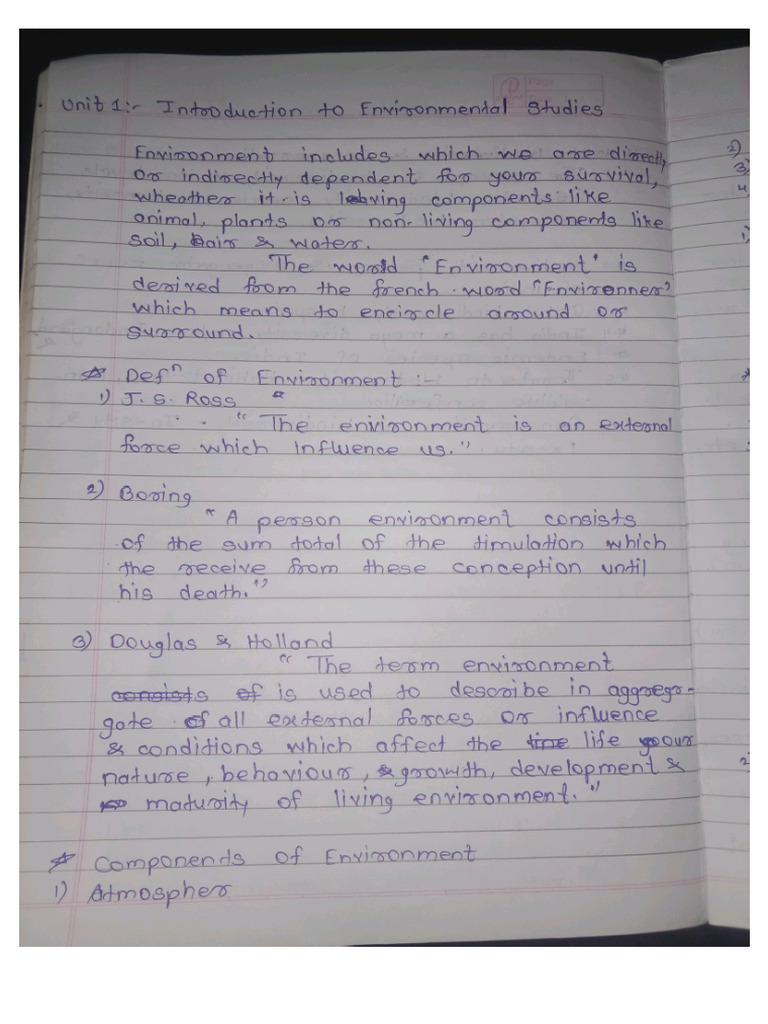 Unit 1:- Introduction to Environmental Studies
Environment includes which we are directly
or indirectly dependent for your survival,
wheather it is leaving components like
animal, plants or non-living components like
soil, air & water.
The world "Environment" is
derived from the french word "Environner"
which means to encircle around or
surround.
☆ Defⁿ of Environment :-
1) J. S. Ross "
" The enivironment is an external
force which influence us."
2) Boring
" A person environment consists
of the sum total of the timulation which
the receive from these conception until
his death."
3) Douglas & Holland
" The term environment
consists of is used to describe in aggreg-
gate of all external forces or influence
& conditions which affect the time life your
nature, behaviour, & growth, development &
maturity of living environment."
☆ Components of Environment
1) Atmospher
2)
3)
4
1)
2)